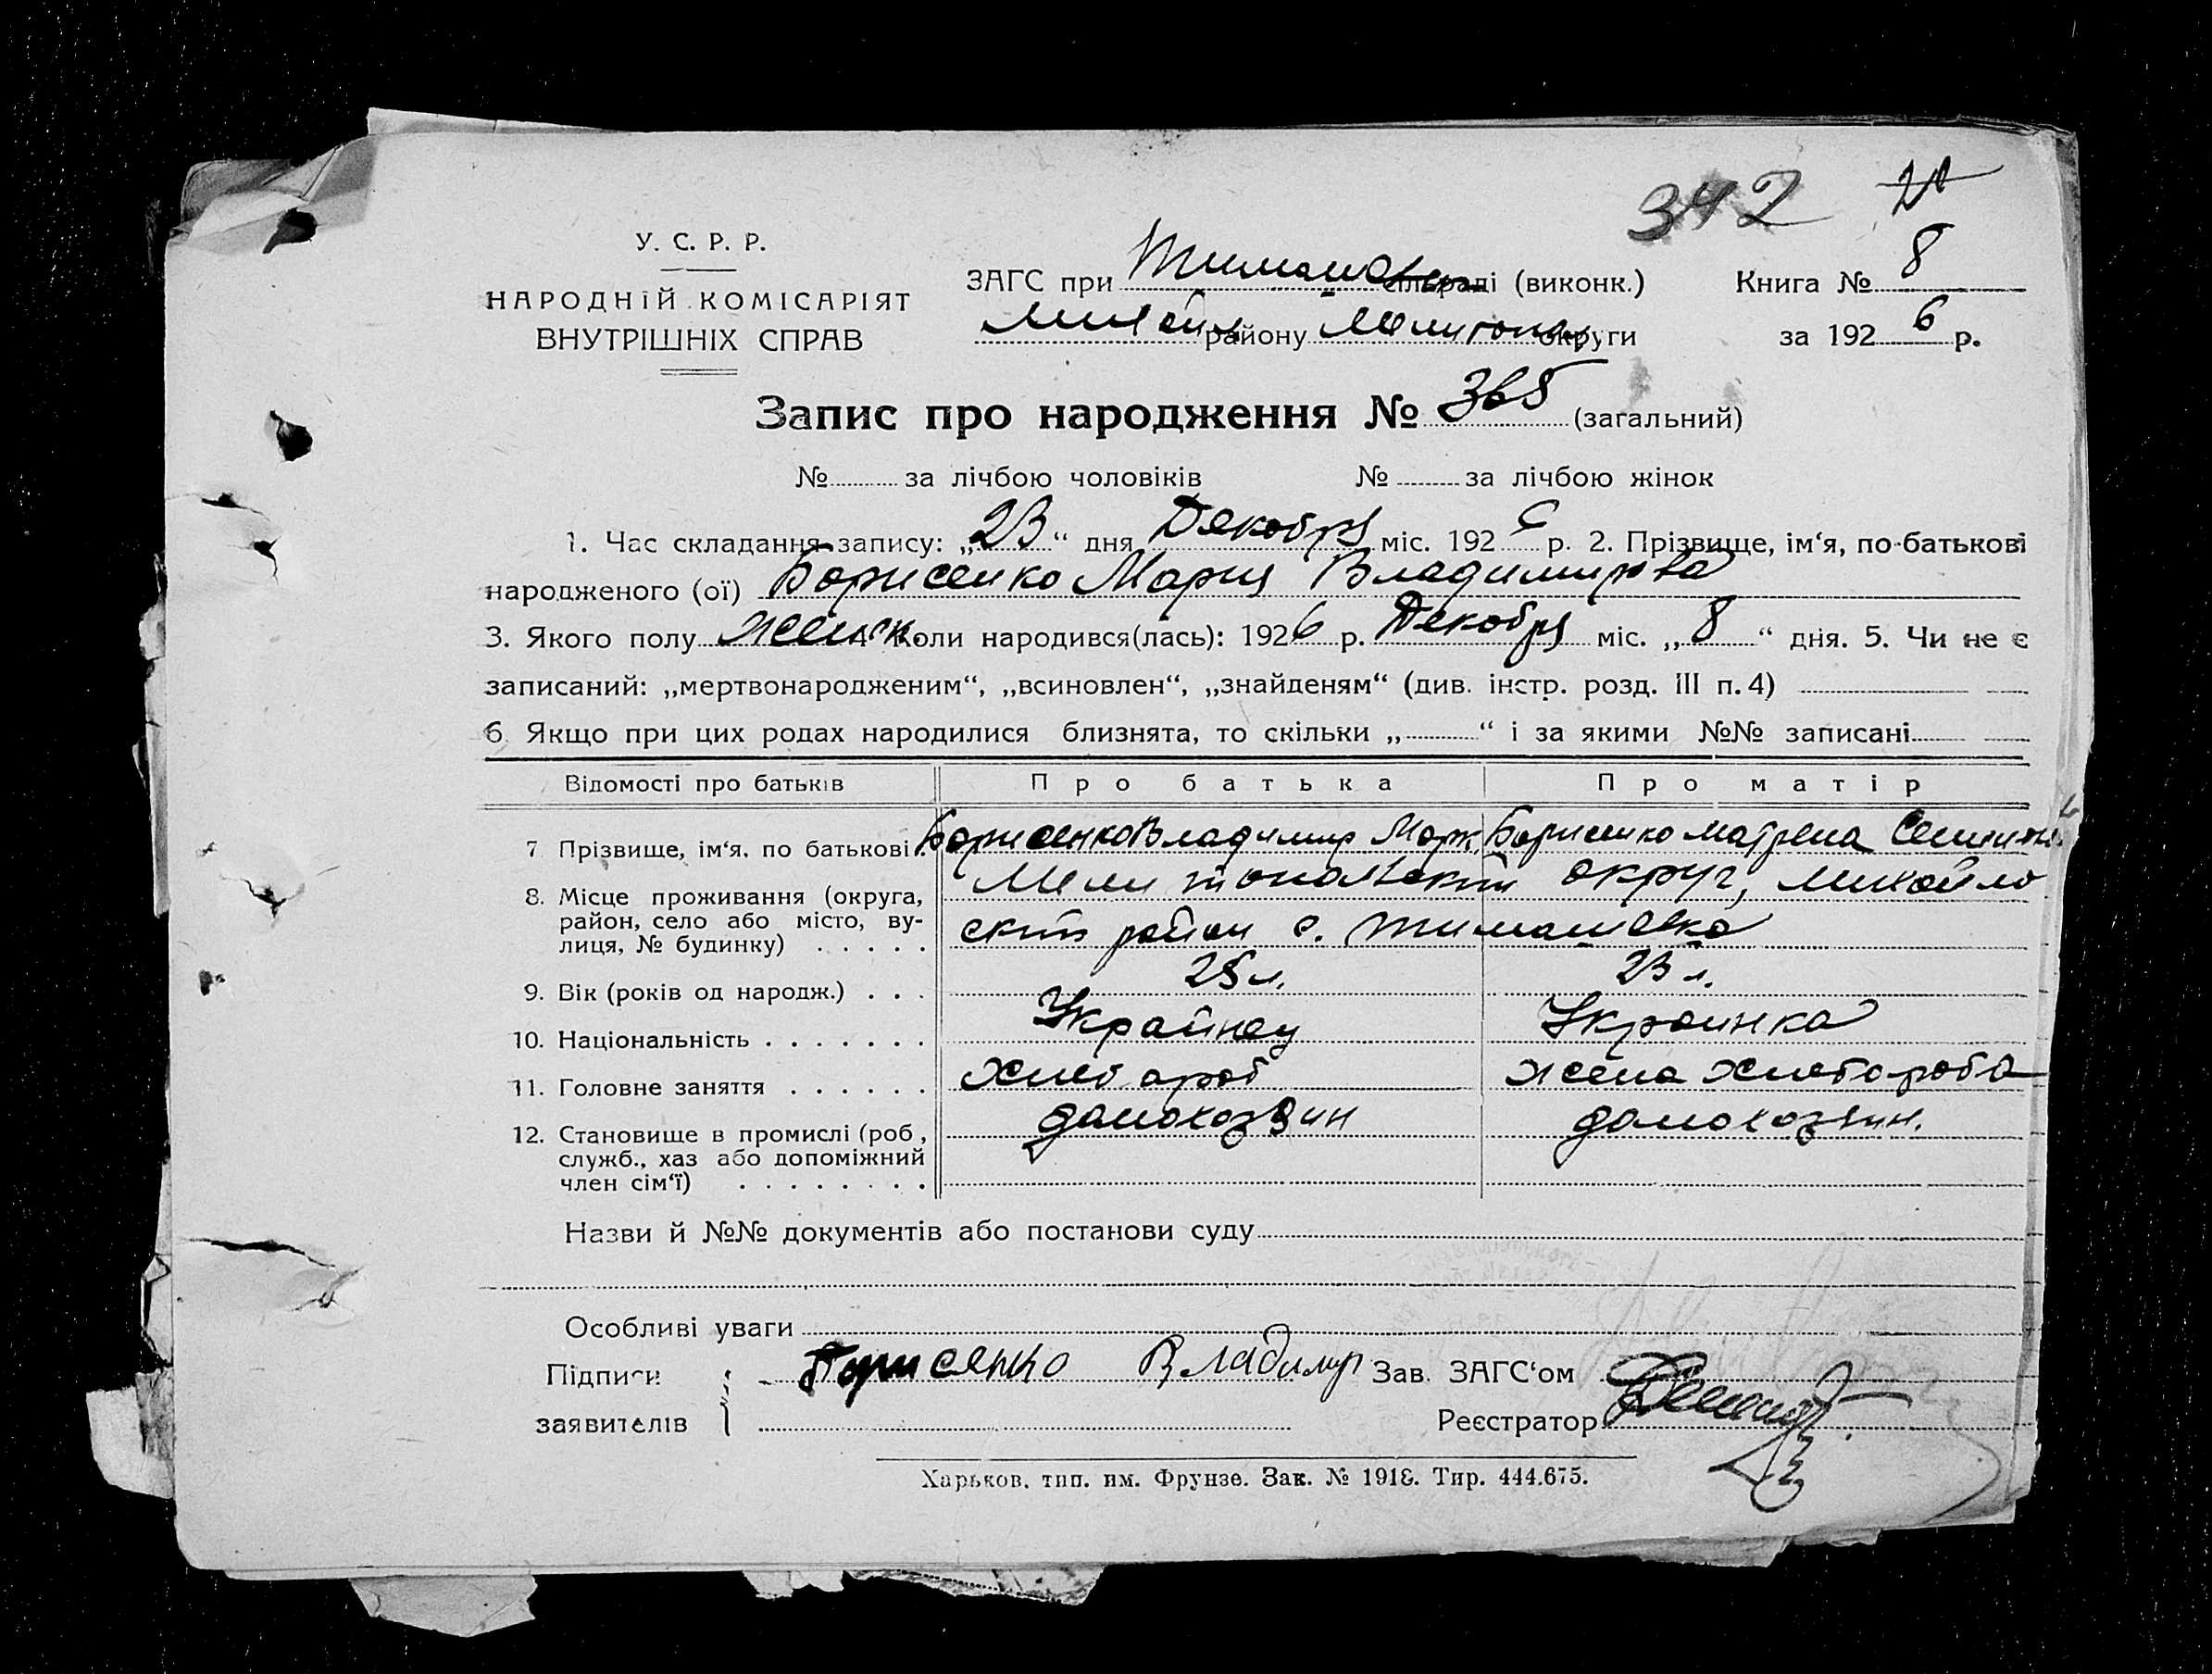 342
У. С. Р. Р.
НАРОДНІЙ КОМІСАРІЯТ
ВНУТРІШНІХ СПРАВ
ЗАГС при Тимашов сільраді (виконк.)
Михайл району Мелитопол округи
Книга № 8
за 1926 р.
Запис про народження № 365 (загальний)
№ за лічбою чоловіків № за лічбою жінок
1. Час складання запису: „23“ дня Декабря міс. 1926 р. 2. Прізвище, ім‘я, по-батькові
народженого (ої) Борисенко Мария Владимировa
3. Якого полу женск. 4 Коли народився(лась): 1926 р. Декабря міс. „8“ дня. 5. Чи не є
записаний: „мертвонародженим“, „всиновлен“, „знайденям“ (див. інстр. розд. III п. 4)
6 Якщо при цих родах народилися близнята, то скільки „ “ і за якими №№ записані
Відомості про батьків Про батька Про матір
7 Прізвище, ім‘я, по батькові Борисенко Владимир Марк. Борисенко Матрена Семион
8. Місце проживання (округа, Мелитопольский округ, Михайло
район, село або місто, ву-
лиця, № будинку) ский район с. Тимашовка
9. Вік (років од народж.) 25 л. 23 л.
10. Національність Украйнец Украинка
11. Головне заняття Хлебороб жена хлебороба
12. Становище в промислі (роб, домохозяин домохозяин.
служб., хаз або допоміжний
член сім‘ї)
Назви й №№ документів або постанови суду
Особливі уваги
Підписи Борисенко Владимир Зав. ЗАГС‘ом
заявителів Реєстратор
Харьков, тип. им. Фрунзе. Зак. № 1918. Тир. 444.675.